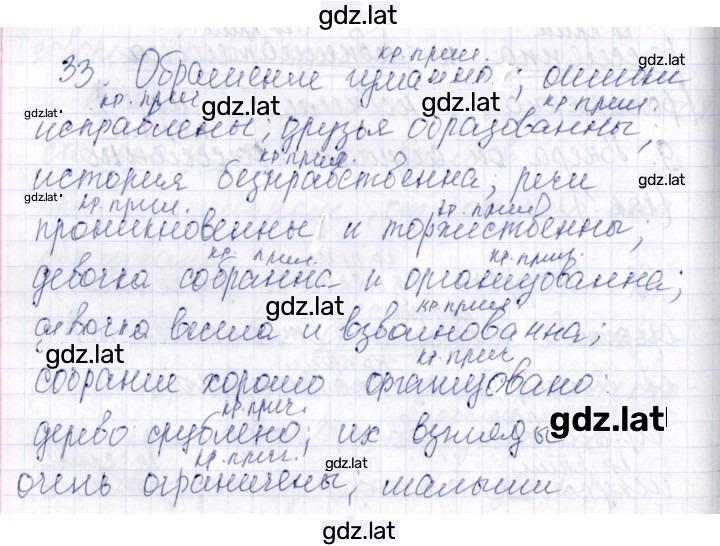 gdz.lat
кр. прил.
33. Обращение гуманно; ошибки
gdz.lat кр. прич gdz.lat gdz.lat кр прил gdz.lat
исправлены; друзья образованны;
кр прил
история безнравственна; речи
gdz.lat gdz.lat gdz.lat
кр. прил. кр. прил
проникновенны и торжественны;
кр. прил. кр. прил.
девочка собранна и организованна;
gdz.lat кр прил
девочка весела и взволнованна;
gdz.lat gdz.lat кр. прич
собрание хорошо организовано:
кр. прич. gdz.lat
дерево срублено; их взгляды
кр. прич. gdz.lat
очень ограничены, малыши
gdz.lat